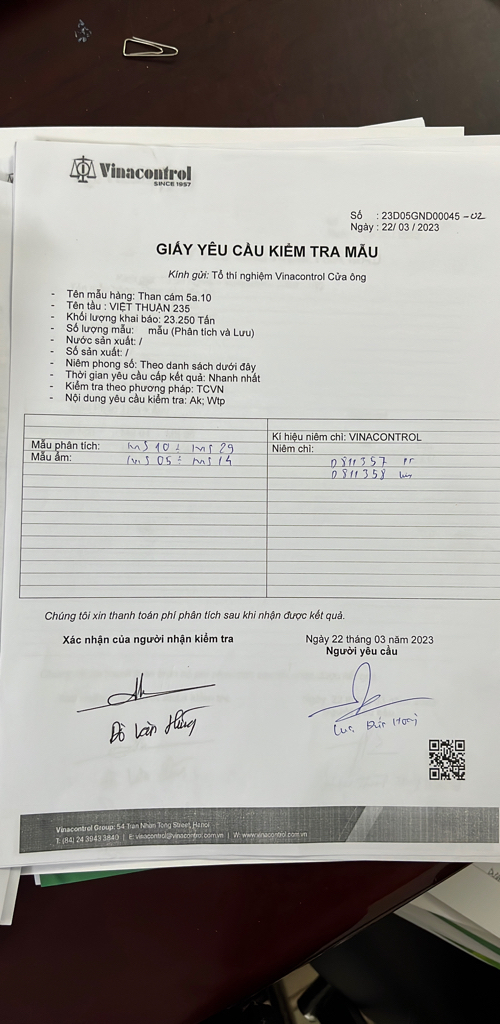 Vinacontrol
SINCE 1957
Số : 23D05GND00045 -02
Ngày : 22/ 03 / 2023
GIẤY YÊU CẦU KIỂM TRA MẪU
Kính gửi: Tổ thí nghiệm Vinacontrol Cửa ông
- Tên mẫu hàng: Than cám 5a.10
- Tên tầu : VIỆT THUẬN 235
- Khối lượng khai báo: 23.250 Tấn
- Số lượng mẫu: mẫu (Phân tích và Lưu)
- Nước sản xuất: /
- Số sản xuất: /
- Niêm phong số: Theo danh sách dưới đây
- Thời gian yêu cầu cấp kết quả: Nhanh nhất
- Kiểm tra theo phương pháp: TCVN
- Nội dung yêu cầu kiểm tra: Ak; Wtp
Kí hiệu niêm chì: VINACONTROL
Mẫu phân tích: MS 10 ÷ MS 29 Niêm chì:
Mẫu ẩm: MS 05 ÷ MS 14 0811357 PT
0811358
Chúng tôi xin thanh toán phí phân tích sau khi nhận được kết quả.
Xác nhận của người nhận kiểm tra Ngày 22 tháng 03 năm 2023
Người yêu cầu
Đỗ Văn Hùng
Vinacontrol Group: 54 Tran Nhan Tong Street, Hanoi
T: (84) 24 3943 3840 | E: vinacontrol@vinacontrol.com.vn | W: www.vinacontrol.com.vn